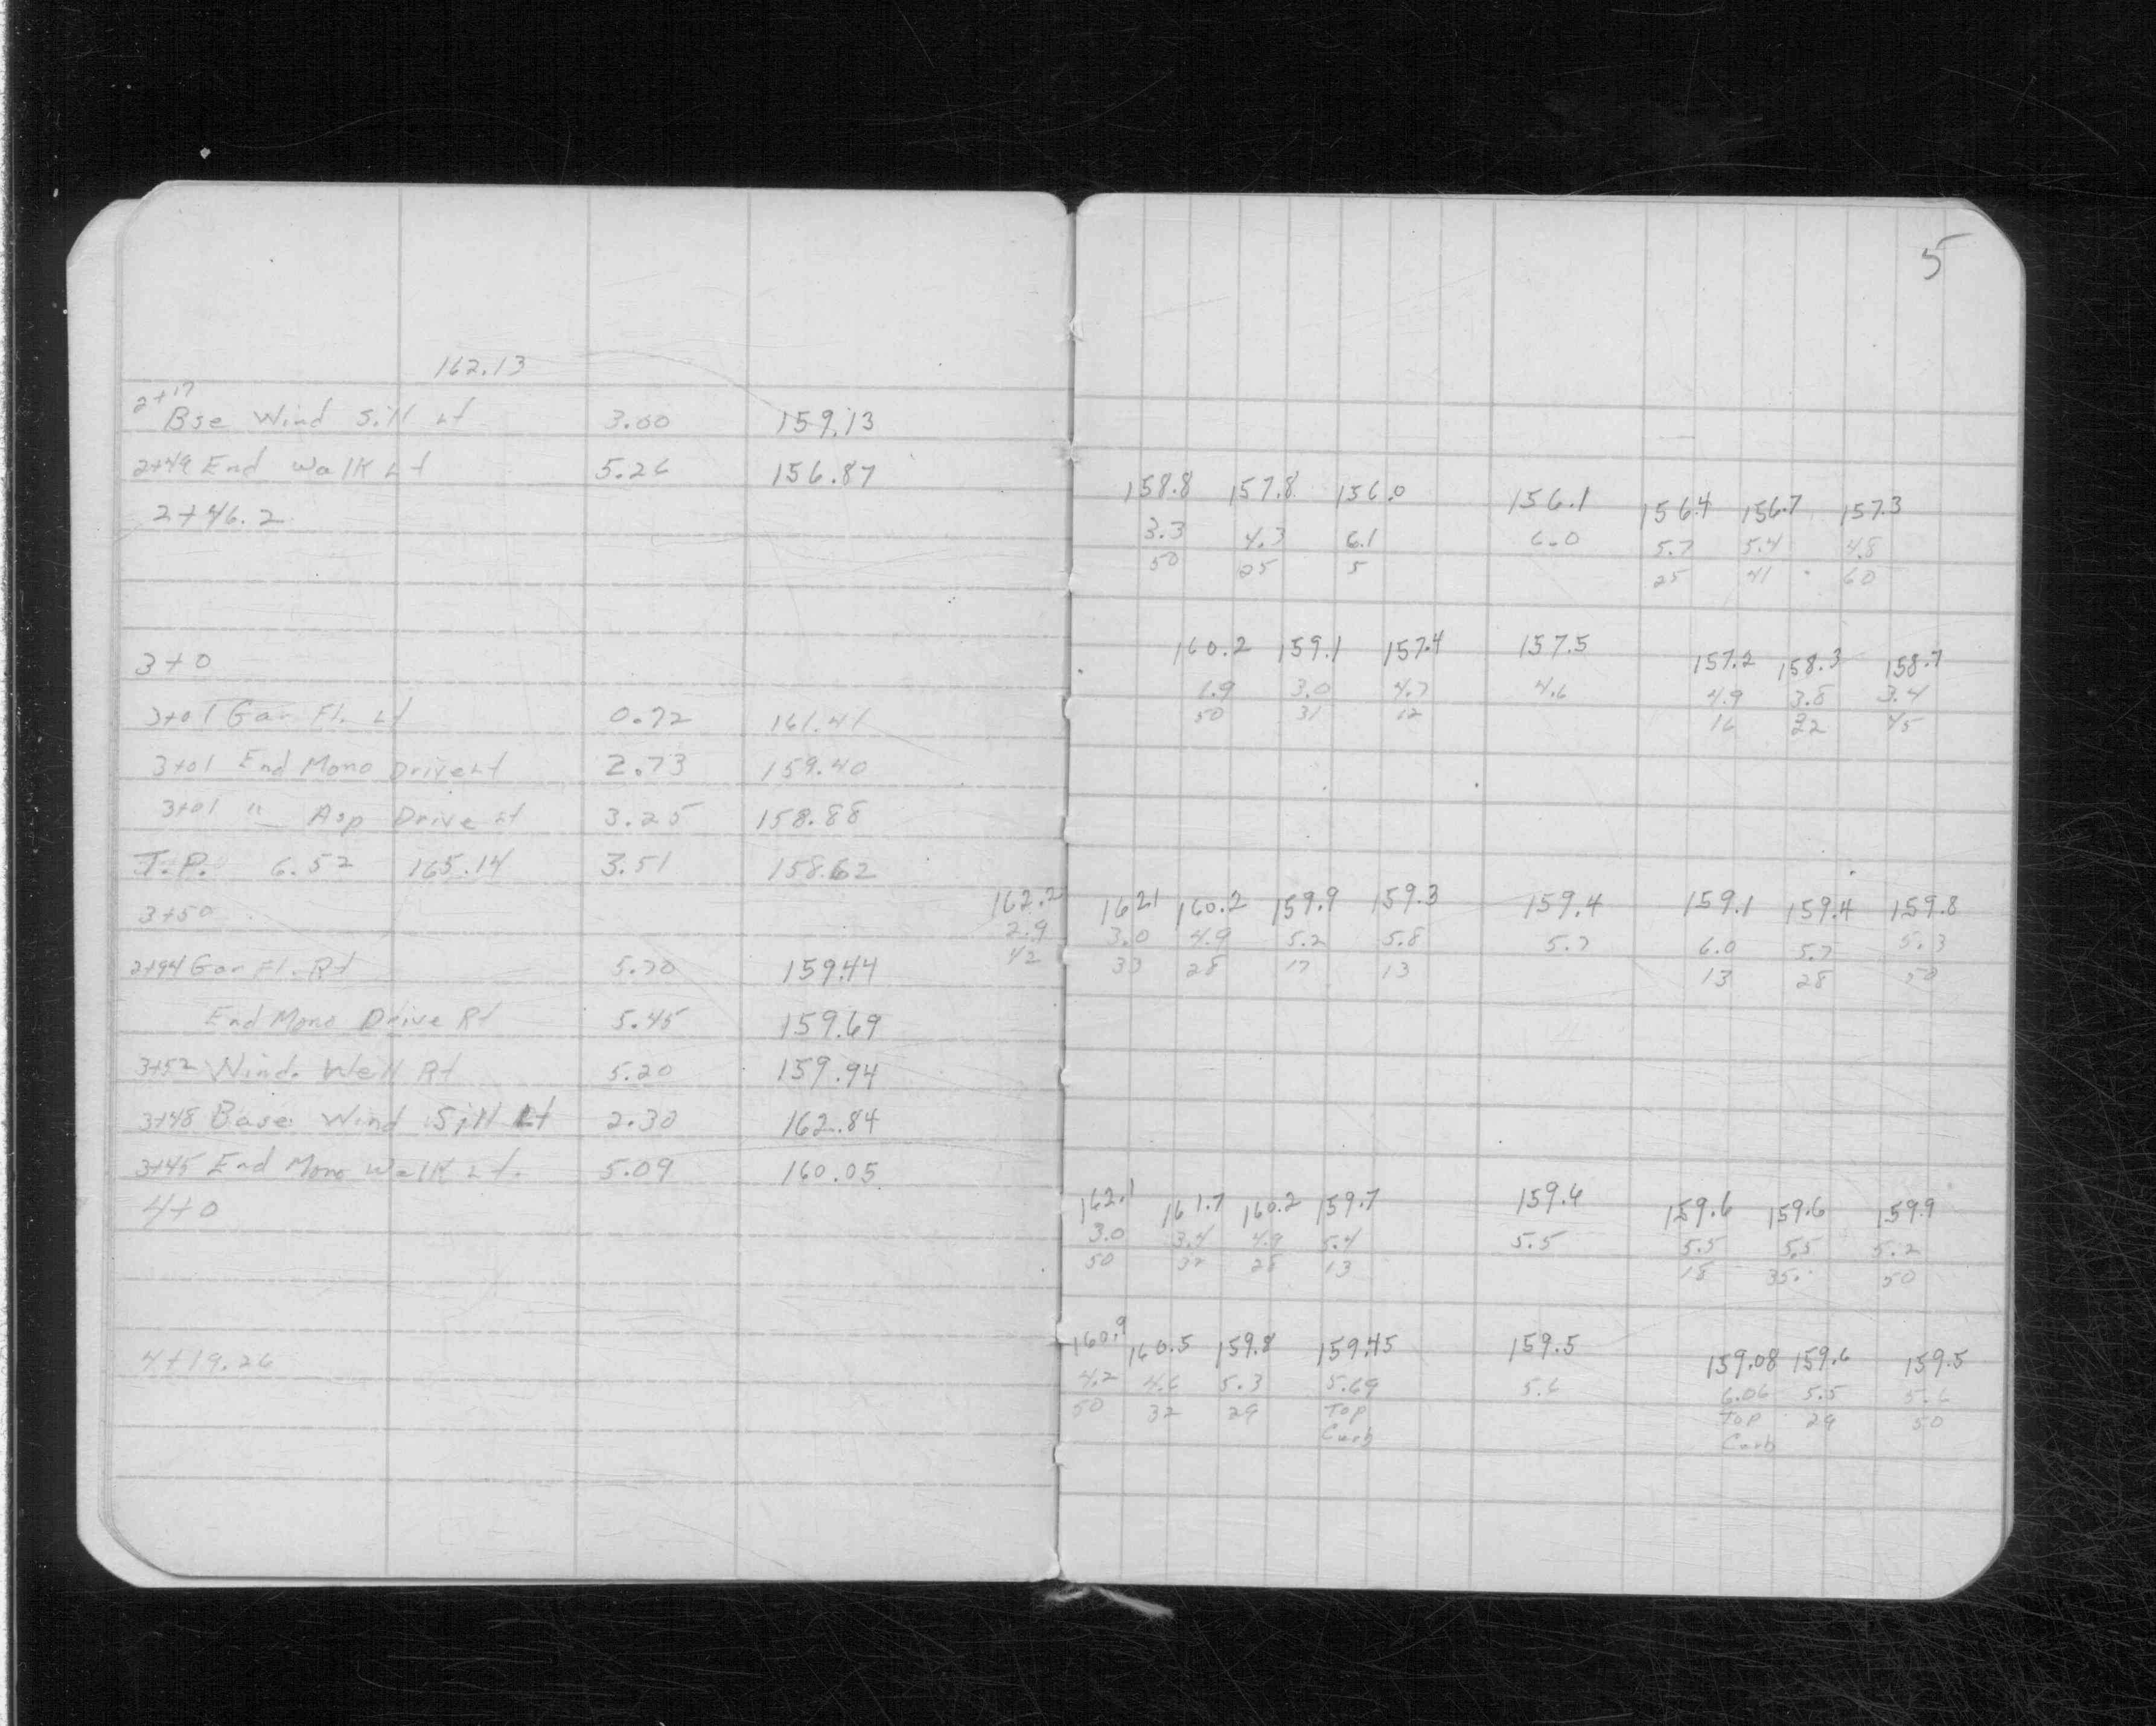 162.13
2+17
Bse Wind Sill Lt 3.00 159.13
2+49 End Walk Lt 5.26 156.87
2+46.2
3+0
3+01 Gar Fl. Lt 0.72 161.41
3+01 End Mono Drive Lt 2.73 159.40
3+01 " Asp Drive Lt 3.25 158.88
T.P. 6.52 165.14 3.51 158.62
3+50
2+94 Gar Fl. Rt 5.70 159.44
End Mono Drive Rt 5.45 159.69
3+52 Wind. Well Rt 5.20 159.94
3+48 Base Wind Sill Lt 2.30 162.84
3+45 End Mono Walk Lt. 5.09 160.05
4+0
4+19.26
5
158.8 157.8 156.0 156.1 156.4 156.7 157.3
3.3 4.3 6.1 6.0 5.7 5.4 4.8
50 25 5 25 41 60
160.2 159.1 157.4 157.5 157.2 158.3 158.7
1.9 3.0 4.7 4.6 4.9 3.8 3.4
50 31 12 16 22 45
162.2 162.1 160.2 159.9 159.3 159.4 159.1 159.4 159.8
2.9 3.0 4.9 5.2 5.8 5.7 6.0 5.7 5.3
42 33 28 17 13 13 28 50
162.1 161.7 160.2 159.7 159.6 159.6 159.6 159.9
3.0 3.4 4.9 5.4 5.5 5.5 5.5 5.2
50 32 28 13 18 35. 50
160.9 160.5 159.8 159.45 159.5 159.08 159.6 159.5
4.2 4.6 5.3 5.69 5.6 6.06 5.5 5.6
50 32 29 Top Top 29 50
Curb Curb